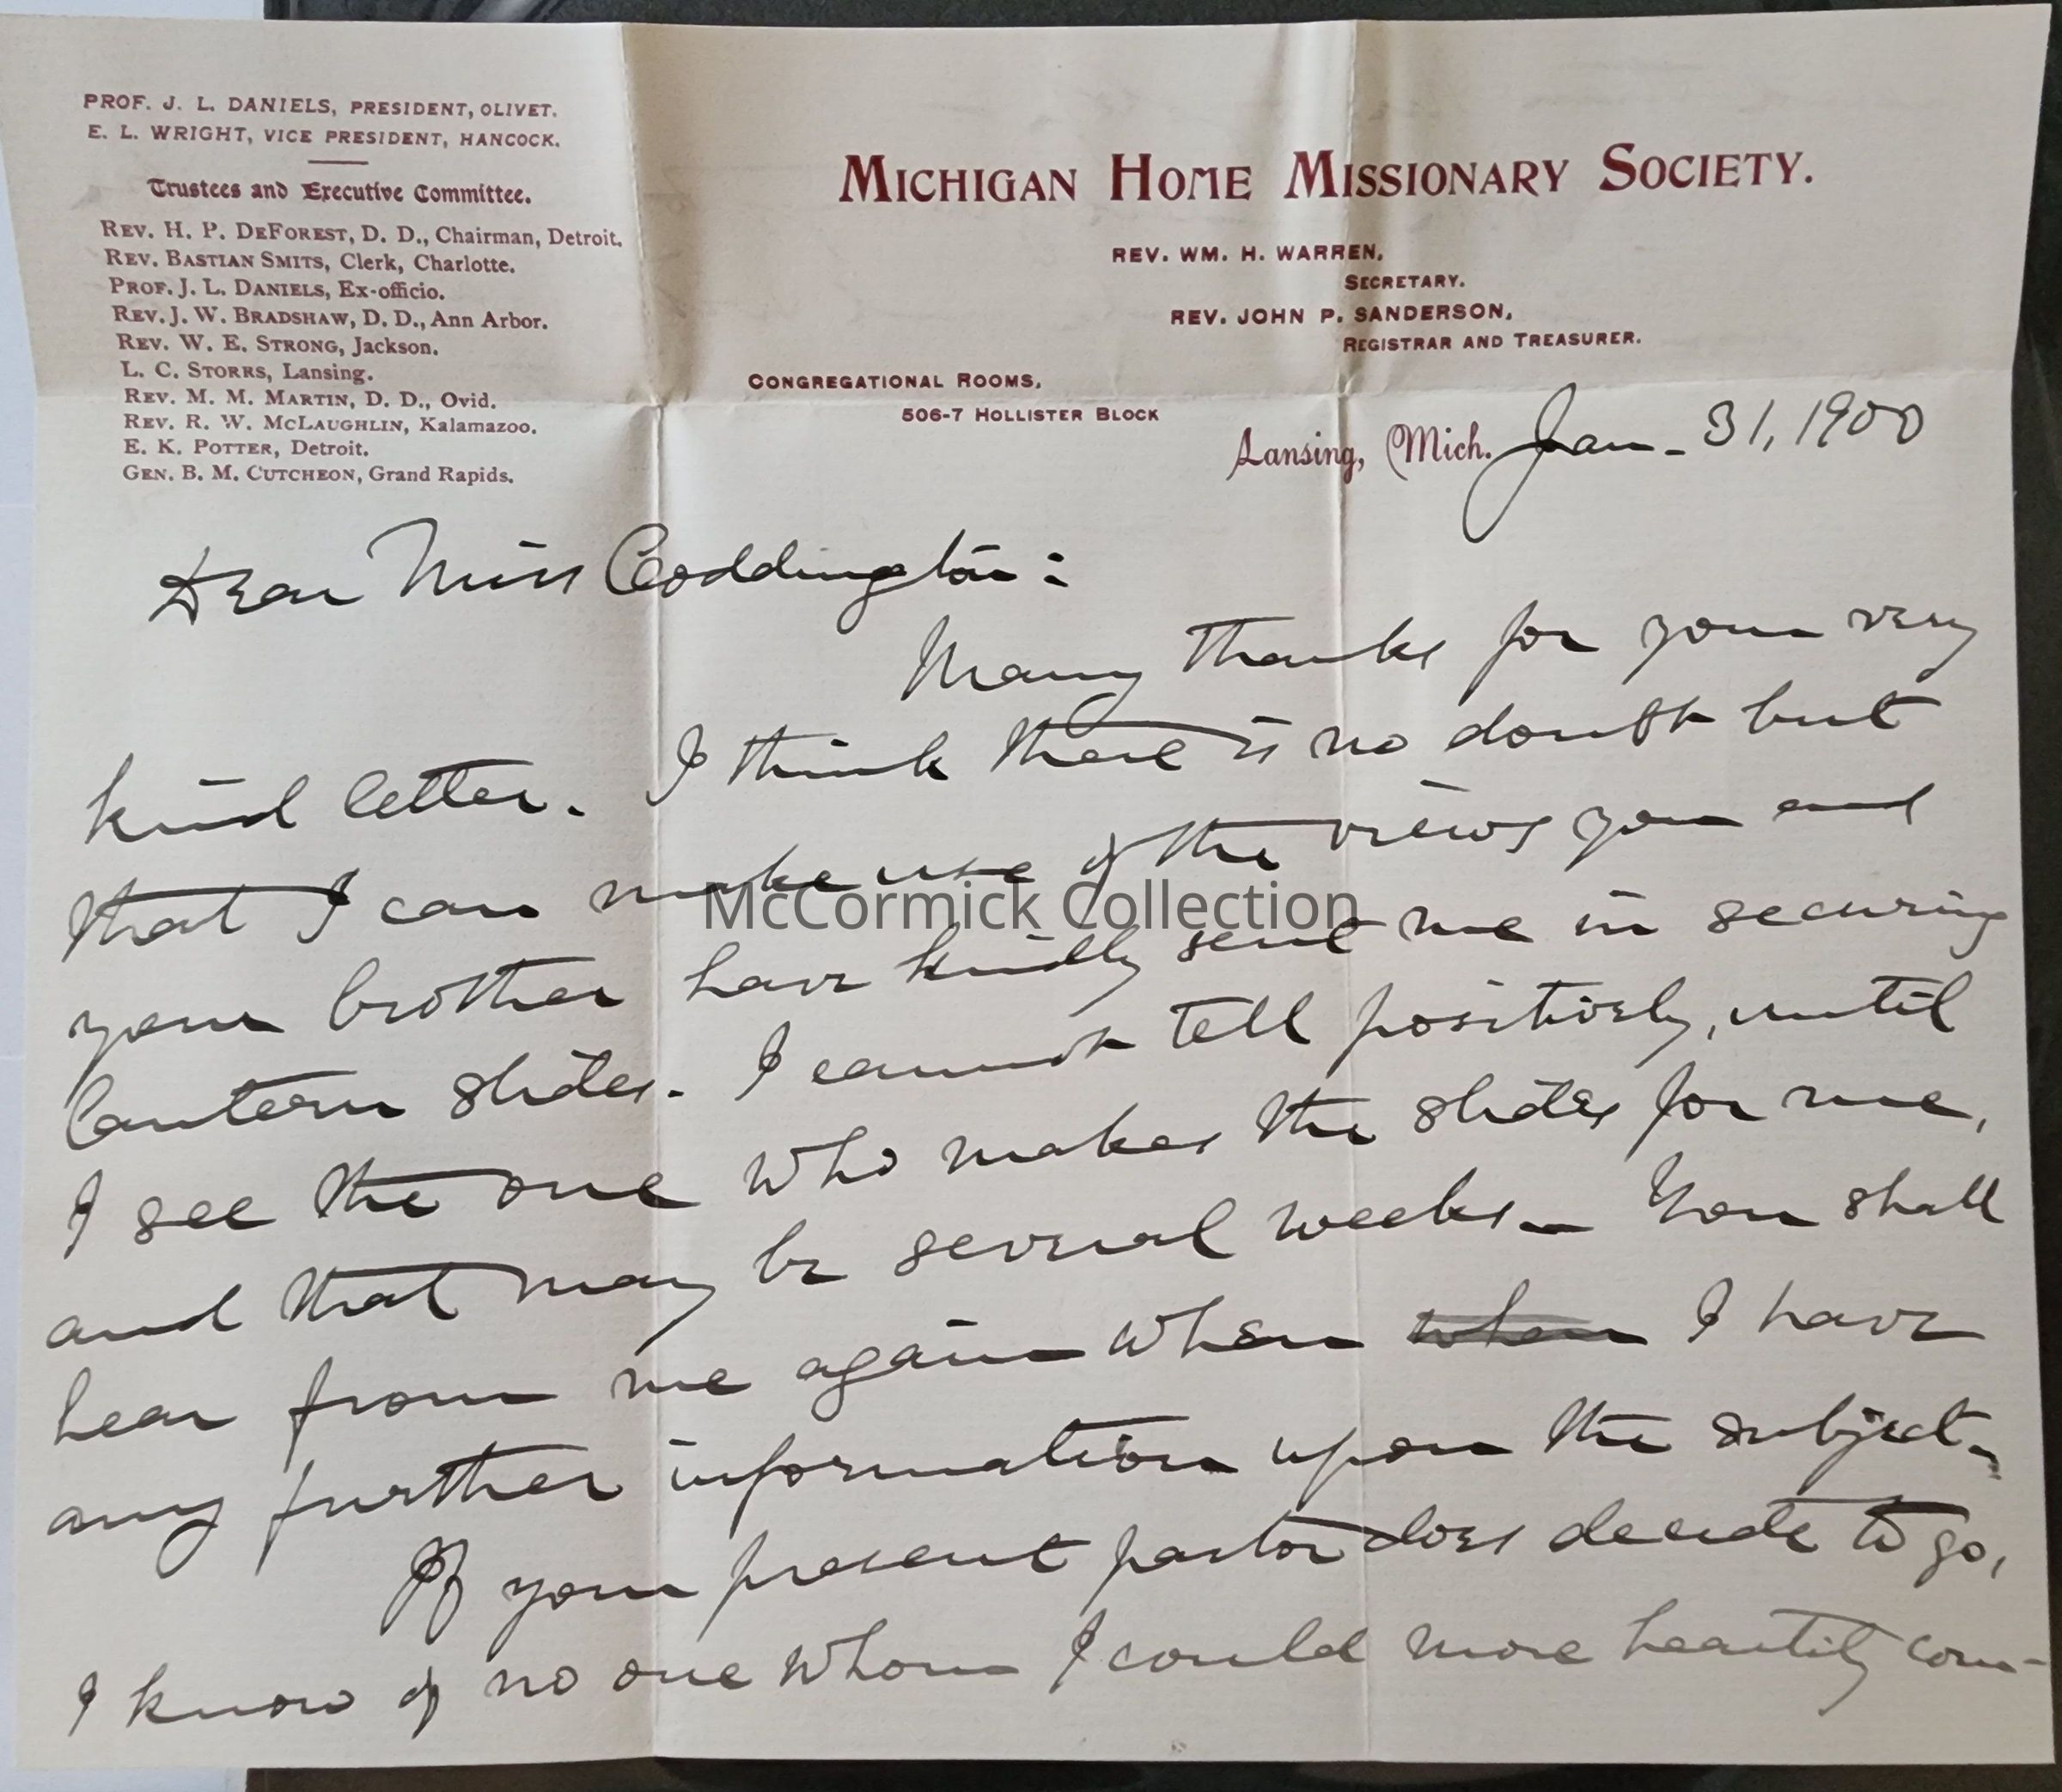 PROF. J. L. DANIELS, PRESIDENT, OLIVET.
E. L. WRIGHT, VICE PRESIDENT, HANCOCK.
Trustees and Executive Committee.
REV. H. P. DEFOREST, D. D., Chairman, Detroit.
REV. BASTIAN SMITS, Clerk, Charlotte.
PROF. J. L. DANIELS, Ex-officio.
REV. J. W. BRADSHAW, D. D., Ann Arbor.
REV. W. E. STRONG, Jackson.
L. C. STORRS, Lansing.
REV. M. M. MARTIN, D. D., Ovid.
REV. R. W. MCLAUGHLIN, Kalamazoo.
E. K. POTTER, Detroit.
GEN. B. M. CUTCHEON, Grand Rapids.
MICHIGAN HOME MISSIONARY SOCIETY.
REV. WM. H. WARREN,
SECRETARY.
REV. JOHN P. SANDERSON,
REGISTRAR AND TREASURER.
CONGREGATIONAL ROOMS,
506-7 HOLLISTER BLOCK
Lansing, Mich. Jan. 31, 1900
Dear Miss Coddington:
Many thanks for your very
kind letter. I think there is no doubt but
that I can make use of the views you and
your brother have kindly sent me in securing
lantern slides. I cannot tell positively, until
I see the one who makes the slides for me,
and that may be several weeks. You shall
hear from me again when when I have
any further information upon the subject.
If your present pastor does decide to go,
I know of no one whom I could more heartily com-
McCormick Collection